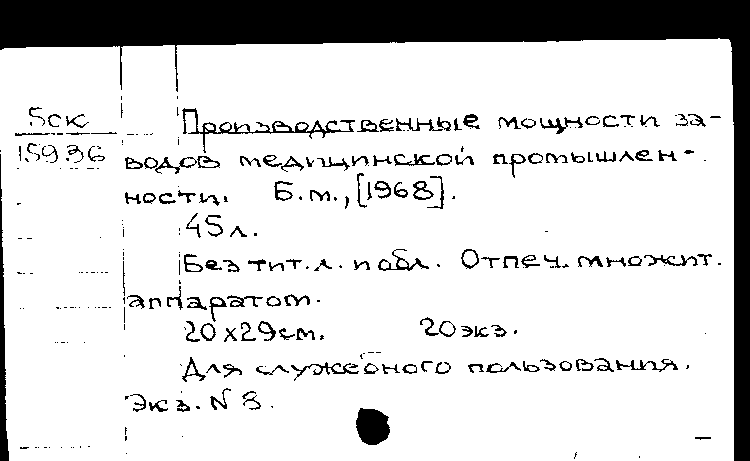 5ск
15936
Производственные мощности за-
водов медицинской промышлен-
ности. Б.м., [1968].
45 л.
Без тит. л. и обл. Отпеч. множит.
аппаратом.
20х29см. 20 экз.
Для служебного пользования.
Экз. N 8.